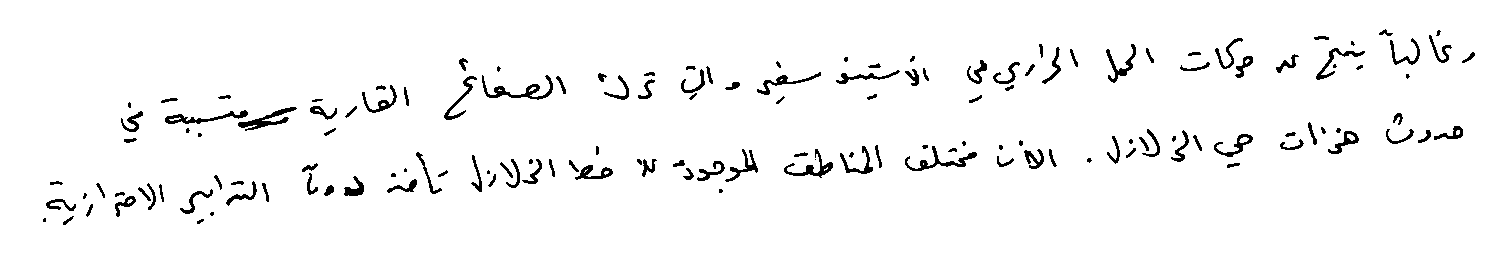 وغالباً ينتج عن حركات الحمل الحراري في الاستينوسفير والتي تحرك الصفائح القارية متسببة في
حدوث هزات هي الزلازل. الآن مختلف المناطق الموجودة على خط الزلازل تأخذ دوماً التدابير الاحترازية.